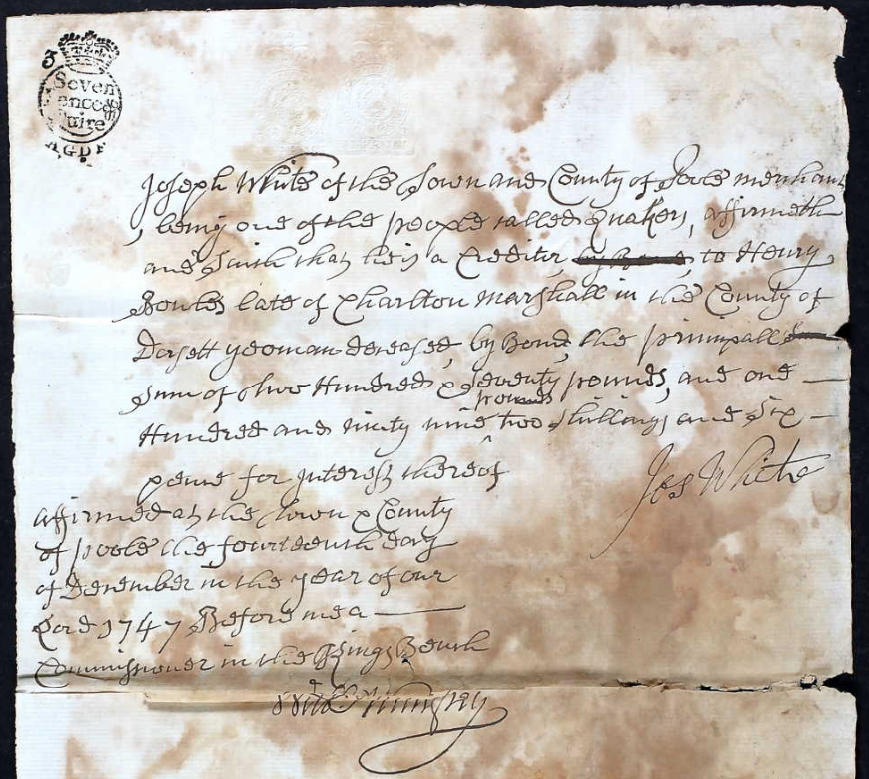 Seven
ence &
Quire
AGDF
Joseph White of the Town and County of Poole merchant
being one of the people called Quakers, affirmeth
and Saith that he is a Creditor, to Henry
late of Charlton Marshall in the County of
Dorsett yeoman deceased, by Bond, the principall
Sum of two Hundred & Seventy pounds, and one
Hundred and ninty nine pounds two shillings and Six
pence for Interest thereof
Jos White
affirmed at the Town & County
of poole the fourteenth day
of December in the year of our
Lord 1747 Before me a
Commissioner in the Kings Bench